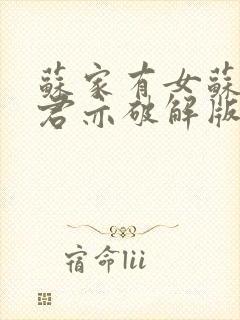 蘇家有女蘇
君亦破解版
宿命lii